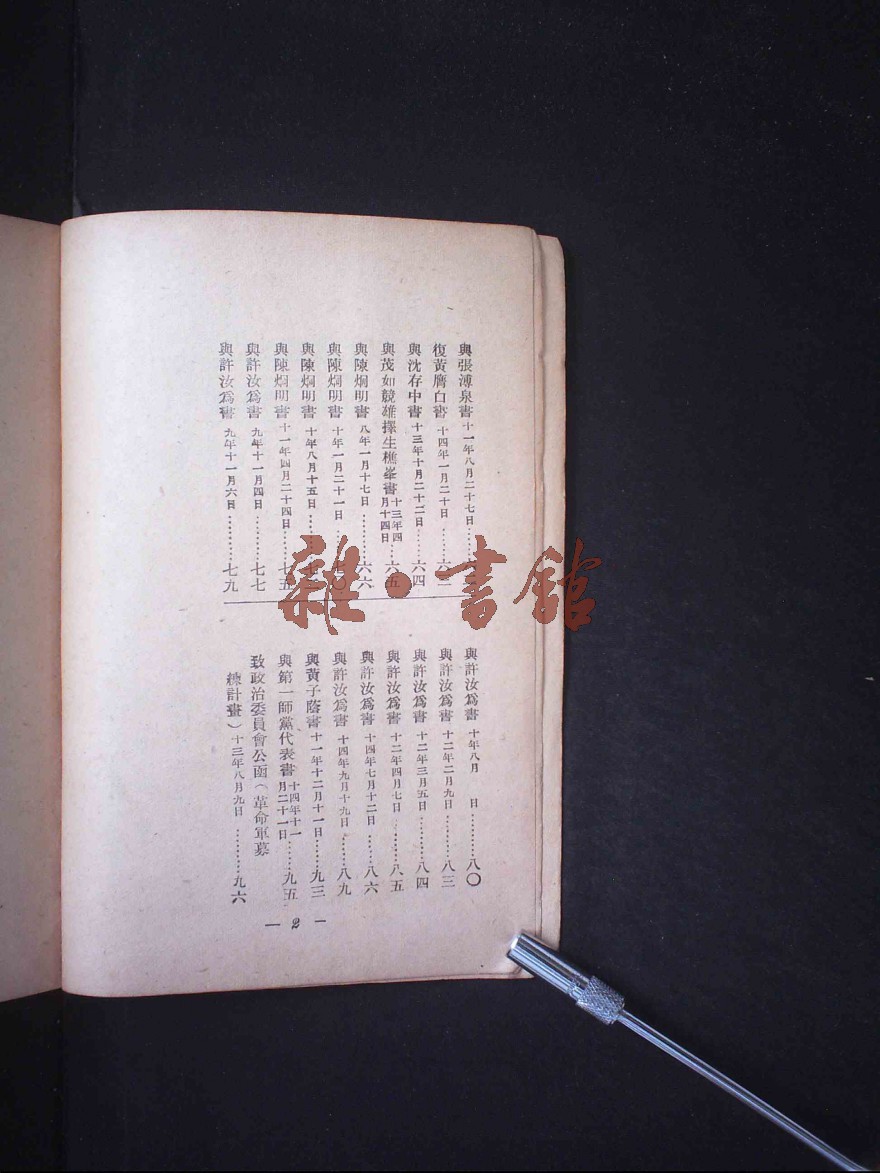 與張溥泉書 十一年八月二十七日
復黃膺白書 十四年一月二十日
與沈存中書 十三年十月二十二日……六四
與茂如競雄擇生樵峯書 十三年四月十四日 六五
與陳烱明書 八年一月十七日…………六六
與陳烱明書 十年一月二十一日……七〇
與陳烱明書 十年八月十五日………七
與陳烱明書 十一年四月二十四日……七五
與許汝爲書 九年十一月四日…………七七
與許汝爲書 九年十一月六日…………七九
與許汝爲書 十年八月 日…………八〇
與許汝爲書 十二年二月九日…………八三
與許汝爲書 十二年三月五日…………八四
與許汝爲書 十二年四月七日…………八五
與許汝爲書 十四年七月十二日………八六
與許汝爲書 十四年九月十九日………八九
與黃子蔭書 十一年十二月十一日……九三
與第一師黨代表書 十四年十一月二十一日……九五
致政治委員會公函（革命軍募
練計畫）十三年八月九日…………九六
— 2 —
雜·書館